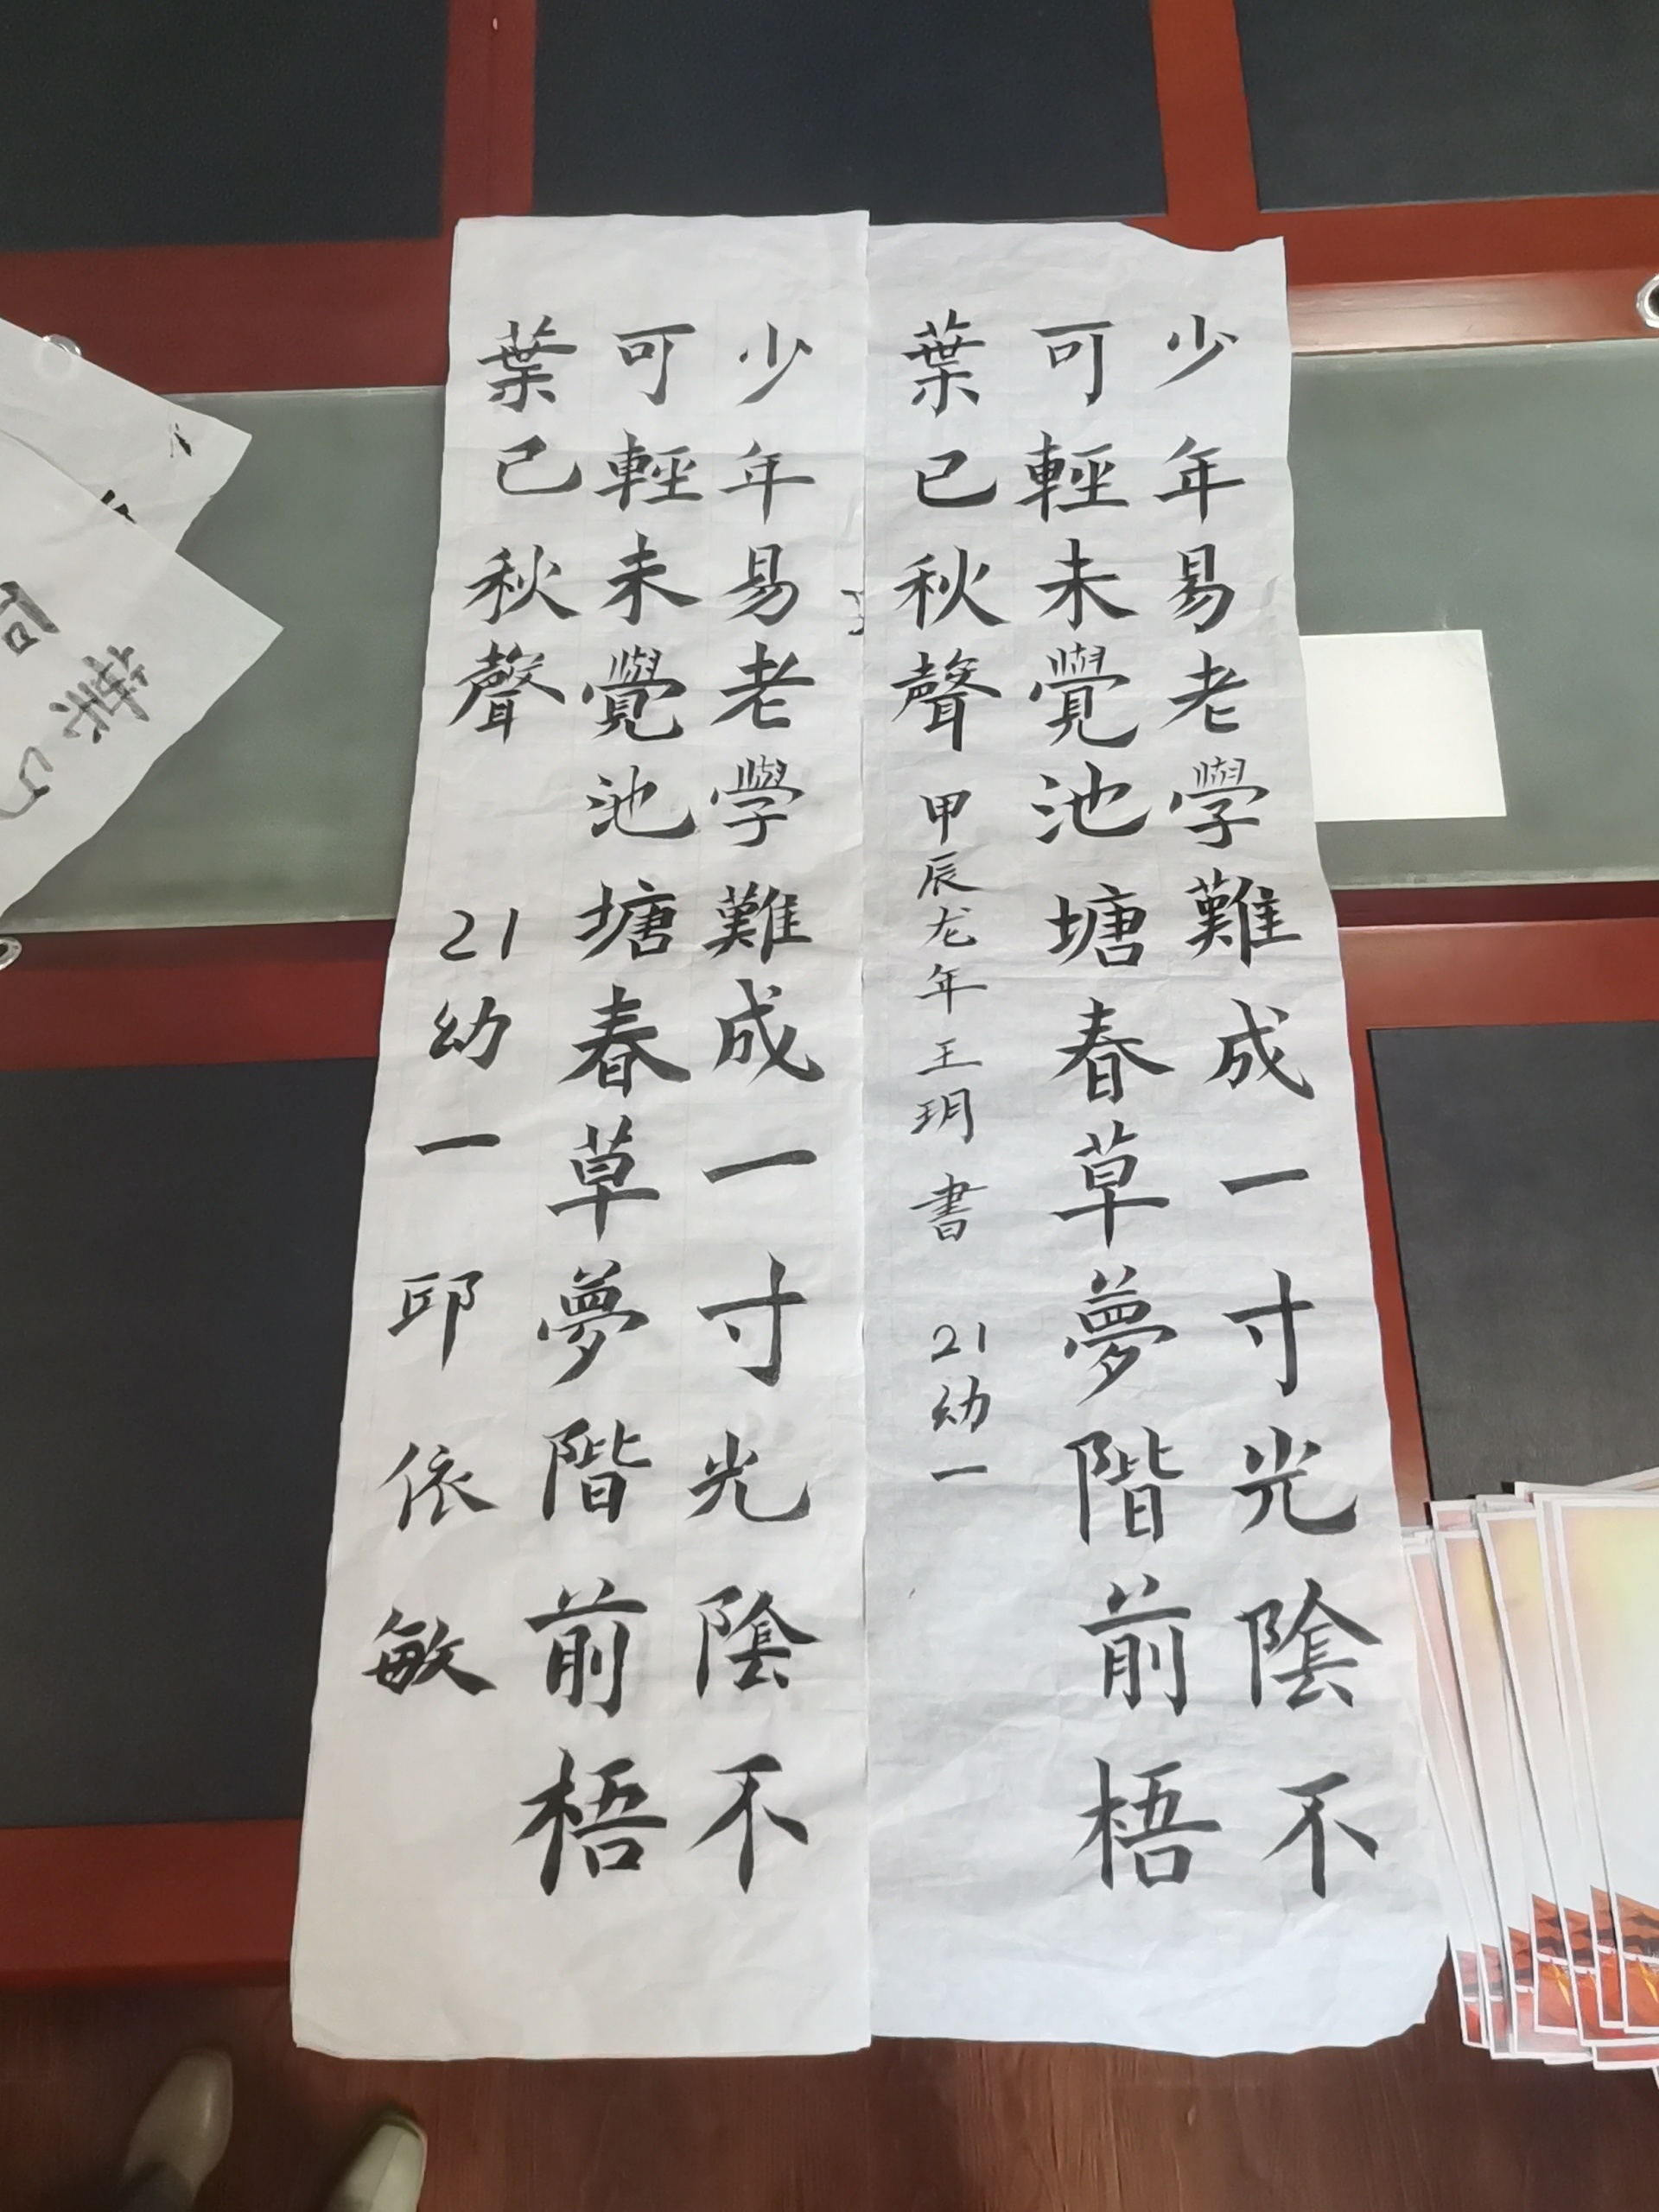 少年易老學難成一寸光陰不
可輕未覺池塘春草夢階前梧
葉已秋聲 甲辰龙年王玥書 21幼一
少年易老學難成一寸光陰不
可輕未覺池塘春草夢階前梧
葉已秋聲 21幼一 邱依敏
葉